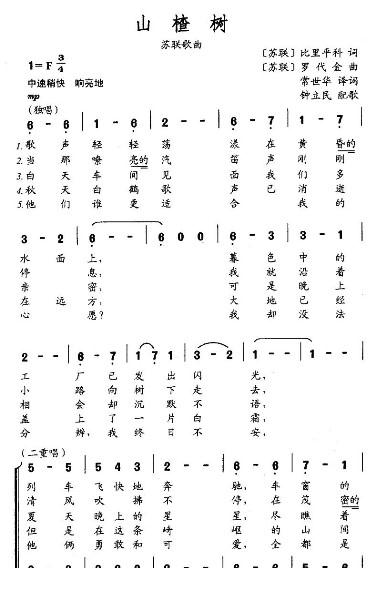 山楂树
苏联歌曲
1=F 3/4
〔苏联〕比里平科 词
〔苏联〕罗代金 曲
中速稍快 响亮地
常世华 译词
mp
钟立民 配歌
(独唱)
6 - 6 | 1 - 6 | 2 - - | 6 - 7
1.歌声轻轻荡漾在黄昏的
2.当那嘹亮的汽笛声刚刚
3.白天车间见面我们多
4.秋天白鹤歌声已消逝
5.他们谁更适合我的
3 - 2 | 6 - - | 6 0 0 | 6 - 3
水面上, 暮色中的
停息, 我就沿着
亲密, 可是晚上
在远方, 大地已经
心愿? 我却没法
2 - - | 6 - 7 | 1 7 1 | 3 - 2 | 1 - - | 1 - -
工厂已发出闪光,
小路向树下走去,
相会却沉默不语,
盖上了一片白霜,
分辨,我终日不安,
(二重唱)
5 - 5 | 5 4 3 | 2 - - | 6 - 6 | 7 - 1
列车飞快地奔驰,车窗的
清风吹拂不停在茂密的
夏天晚上的星星,尽瞧着
但是在这条崎岖的山间
他俩勇敢和可爱,全都是